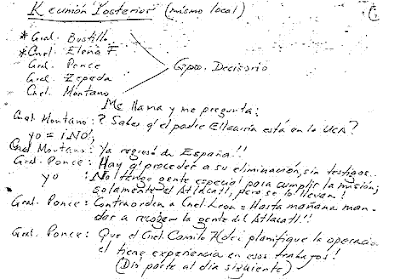 Reunión Posterior (mismo local)
* Gral. Bustillo
* Cnel. Elena F.
Gral. Ponce
Gral. Zepeda
Cnel. Montano
Gpo. Decisorio
Me llama y me pregunta:
Cnel Montano: ? Sabes q' el padre Ellacuría está en la UCA?
yo = ¡NO!,
Cnel Montano: Ya regresó de España!!
Gral. Ponce: Hay q' proceder a su eliminación, sin testigos.
yo : No! tengo gente especial para cumplir la misión;
solamente el Atlacatl, pero se lo llevan!
Gral. Ponce: Contraorden a Cnel. León = Hasta mañana man-
dar a recoger la gente del Atlacatl!!
Gral. Ponce: Que el Cnel. Camilo Hdez. planifique la operación
el tiene experiencia en esos trabajos!
(Dio parte al día siguiente)